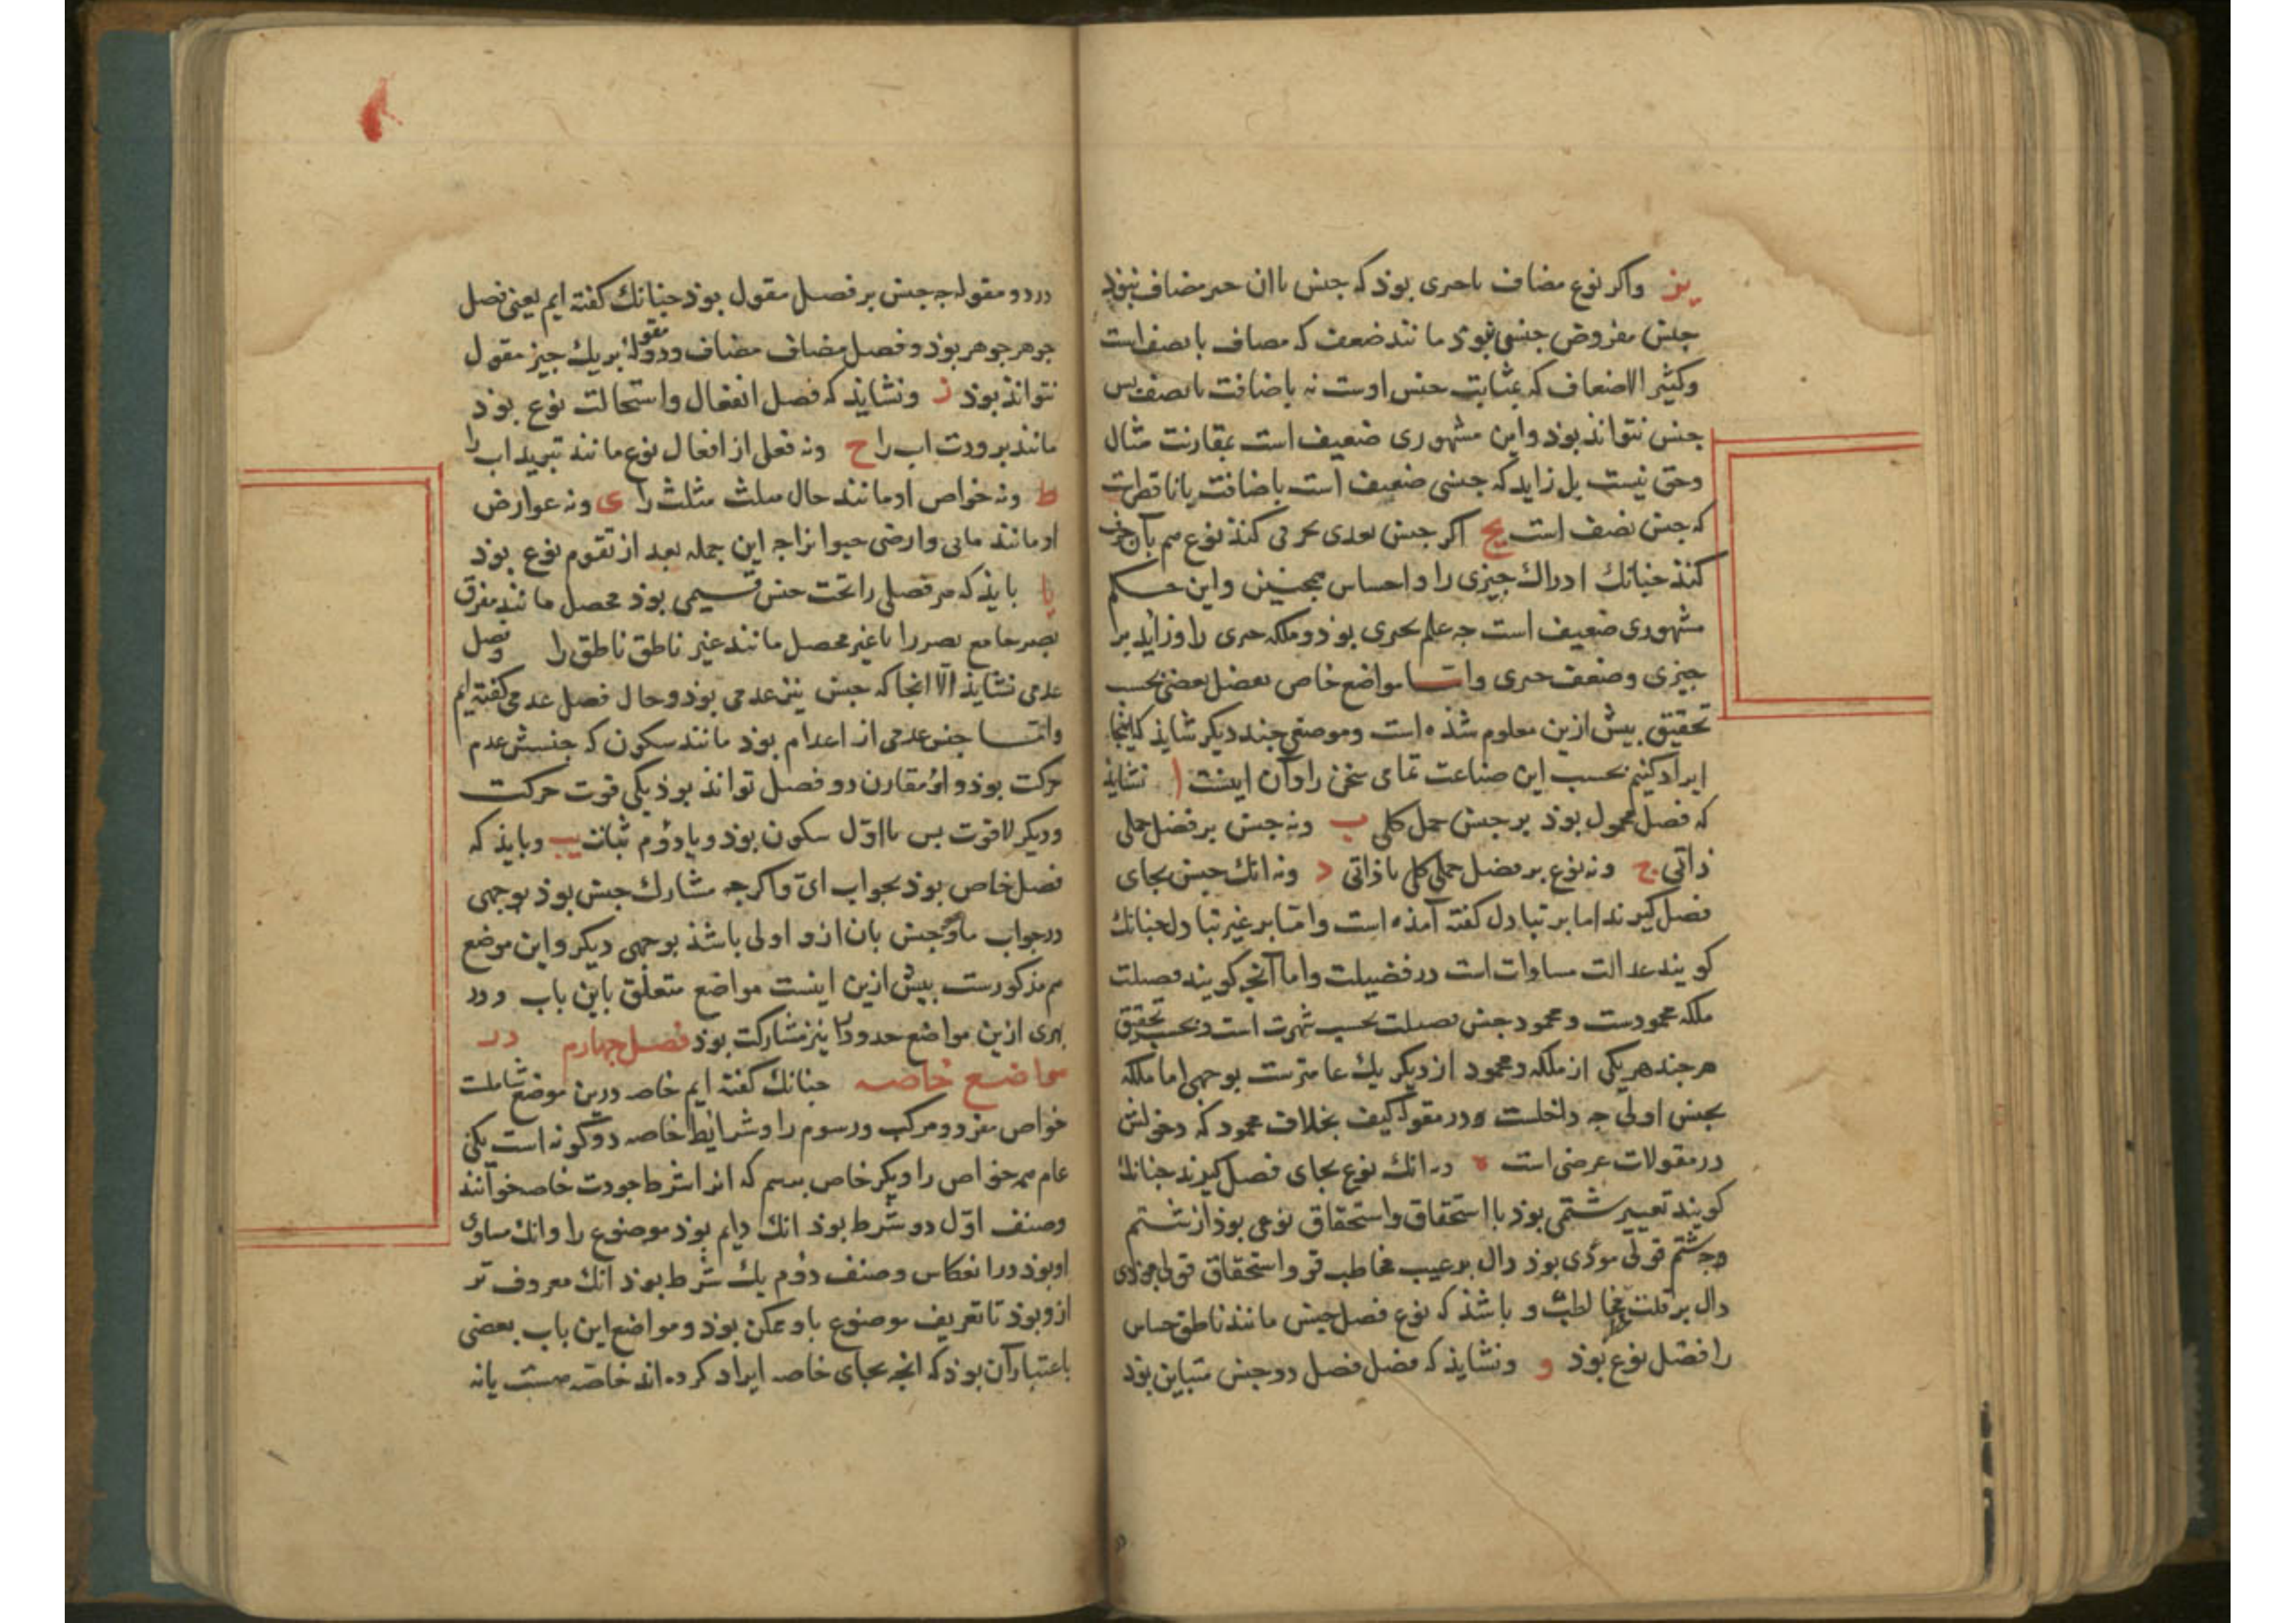 یز واکر نوع مضاف باحری بوذ که جنس باان حیز مضاف نبوذ
جنس مفروض جنس نبوذ مانند ضعف که مضاف با نصف است
وکثیر الاضعاف که بمثابت جنس اوست نه باضافت با نصف بس
جنس نتواند بوذ واین مشهوری ضعیف است بمقارنت مثال
وحق نیست بل زاید که جنس ضعیف است باضافت با ناقص است
که جنس نصف است یح اکر جنس تعدی بحرفی کند نوع هم بآن حرف
کنذ جنانك ادراك جیزی را واحساس همجنین واین حکم
مشهوری ضعیف است جه علم بحیزی بوذ وملکه حیزی را وزاید بر
جیزی وضعف حیزی واما مواضع خاص بفصل بعضی بحسب
تحقیق بیش ازین معلوم شذه است وموضعی جند دیکر شاید که اینجا
ایراد کنیم بحسب این صناعت تمامی سخن را وآن اینست ا نشایذ
که فصل محمول بوذ بر جنس حمل کلی ب ونه جنس بر فصل حملی
ذاتی ج ونه نوع بر فصل حملی کلی یا ذاتی د ونه انك جنس بجای
فصل کیرند اما بر تبادل کفته آمذه است واما بر غیر تبادل جنانك
کویند عدالت مساوات است در فضیلت واما آنجه کویند فضیلت
ملکه محمودست ومحمود جنس فضیلت بحسب شهرت است وبحسب تحقیق
هرجند هریکی از ملکه ومحمود از دیکر یك عامترست بوجهی اما ملکه
بجنس اولی جه داخلست در مقوله کیف بخلاف محمود که دخولش
در مقولات عرضی است ه ونه انك نوع بجای فصل کیرند جنانك
کویند تعییر شتمی بوذ با استحقاق واستحقاق نوعی بوذ از شتم
وجه شتم قولی موذی بوذ دال بر عیب مخاطب واستحقاق قولی موذی
دال بر قلت مخاطب و باشذ که نوع فصل جنس مانند ناطق حساس
را فصل نوع بوذ و ونشایذ که فصل فصل دو جنس متباین بوذ
در دو مقوله جه جنس بر فصل مقول بوذ جنانك کفته ایم یعنی فصل
جوهر جوهر بوذ وفصل مضاف مضاف ودو مقوله بر یك جیز مقول
نتواند بوذ ز ونشایذ که فصل انفعال واستحالت نوع بوذ
مانند برودت اب را ح ونه فعلی از افعال نوع مانند تبرید اب را
ط ونه خواص او مانند حال مثلث مثلث را ی ونه عوارض
او مانند مایی وارضی حیوانرا جه این جمله بعد از تقوم نوع بوذ
یا بایذ که هر فصلی را تحت جنس قسیمی بوذ محصل مانند مفرق
بصر جامع بصر را یا غیر محصل مانند غیر ناطق ناطق را وفصل
عدمی نشایذ الا انجا که جنس نیز عدمی بوذ وحال فصل عدمی کفته ایم
واما جنس عدمی از اعدام بوذ مانند سکون که جنسش عدم
حرکت بوذ واو مقارن دو فصل تواند بوذ یکی قوت حرکت
ودیکر لاقوت بس با اول سکون بوذ وبا دوم ثبات یب وبایذ که
فصل خاص بوذ بجواب ای واکرجه مشارك جنس بوذ بوجهی
در جواب ماو وجنس بان ازو اولی باشذ بوجهی دیکر واین موضع
هم مذکورست بیش ازین اینست مواضع متعلق باین باب ودر
بهری ازین مواضع حدود را نیز مشارکت بوذ فصل جهارم در
مواضع خاصه جنانك کفته ایم خاصه درین موضع شاملست
خواص مفرد ومرکب ورسوم را وشرایط خاصه دوکونه است یکی
عام همه خواص را ودیکر خاص برسم که انرا شرط جودت خاصه خوانند
وصنف اول دو شرط بوذ انك دایم بوذ موضوع را وانك مساوی
اوبوذ در انعکاس وصنف دوم یك شرط بوذ انك معروف تر
ازو بوذ تا تعریف موضوع باو ممکن بوذ ومواضع این باب بعضی
باعتبار آن بوذ که انجه بجای خاصه ایراد کرده اند خاصه هست یا نه